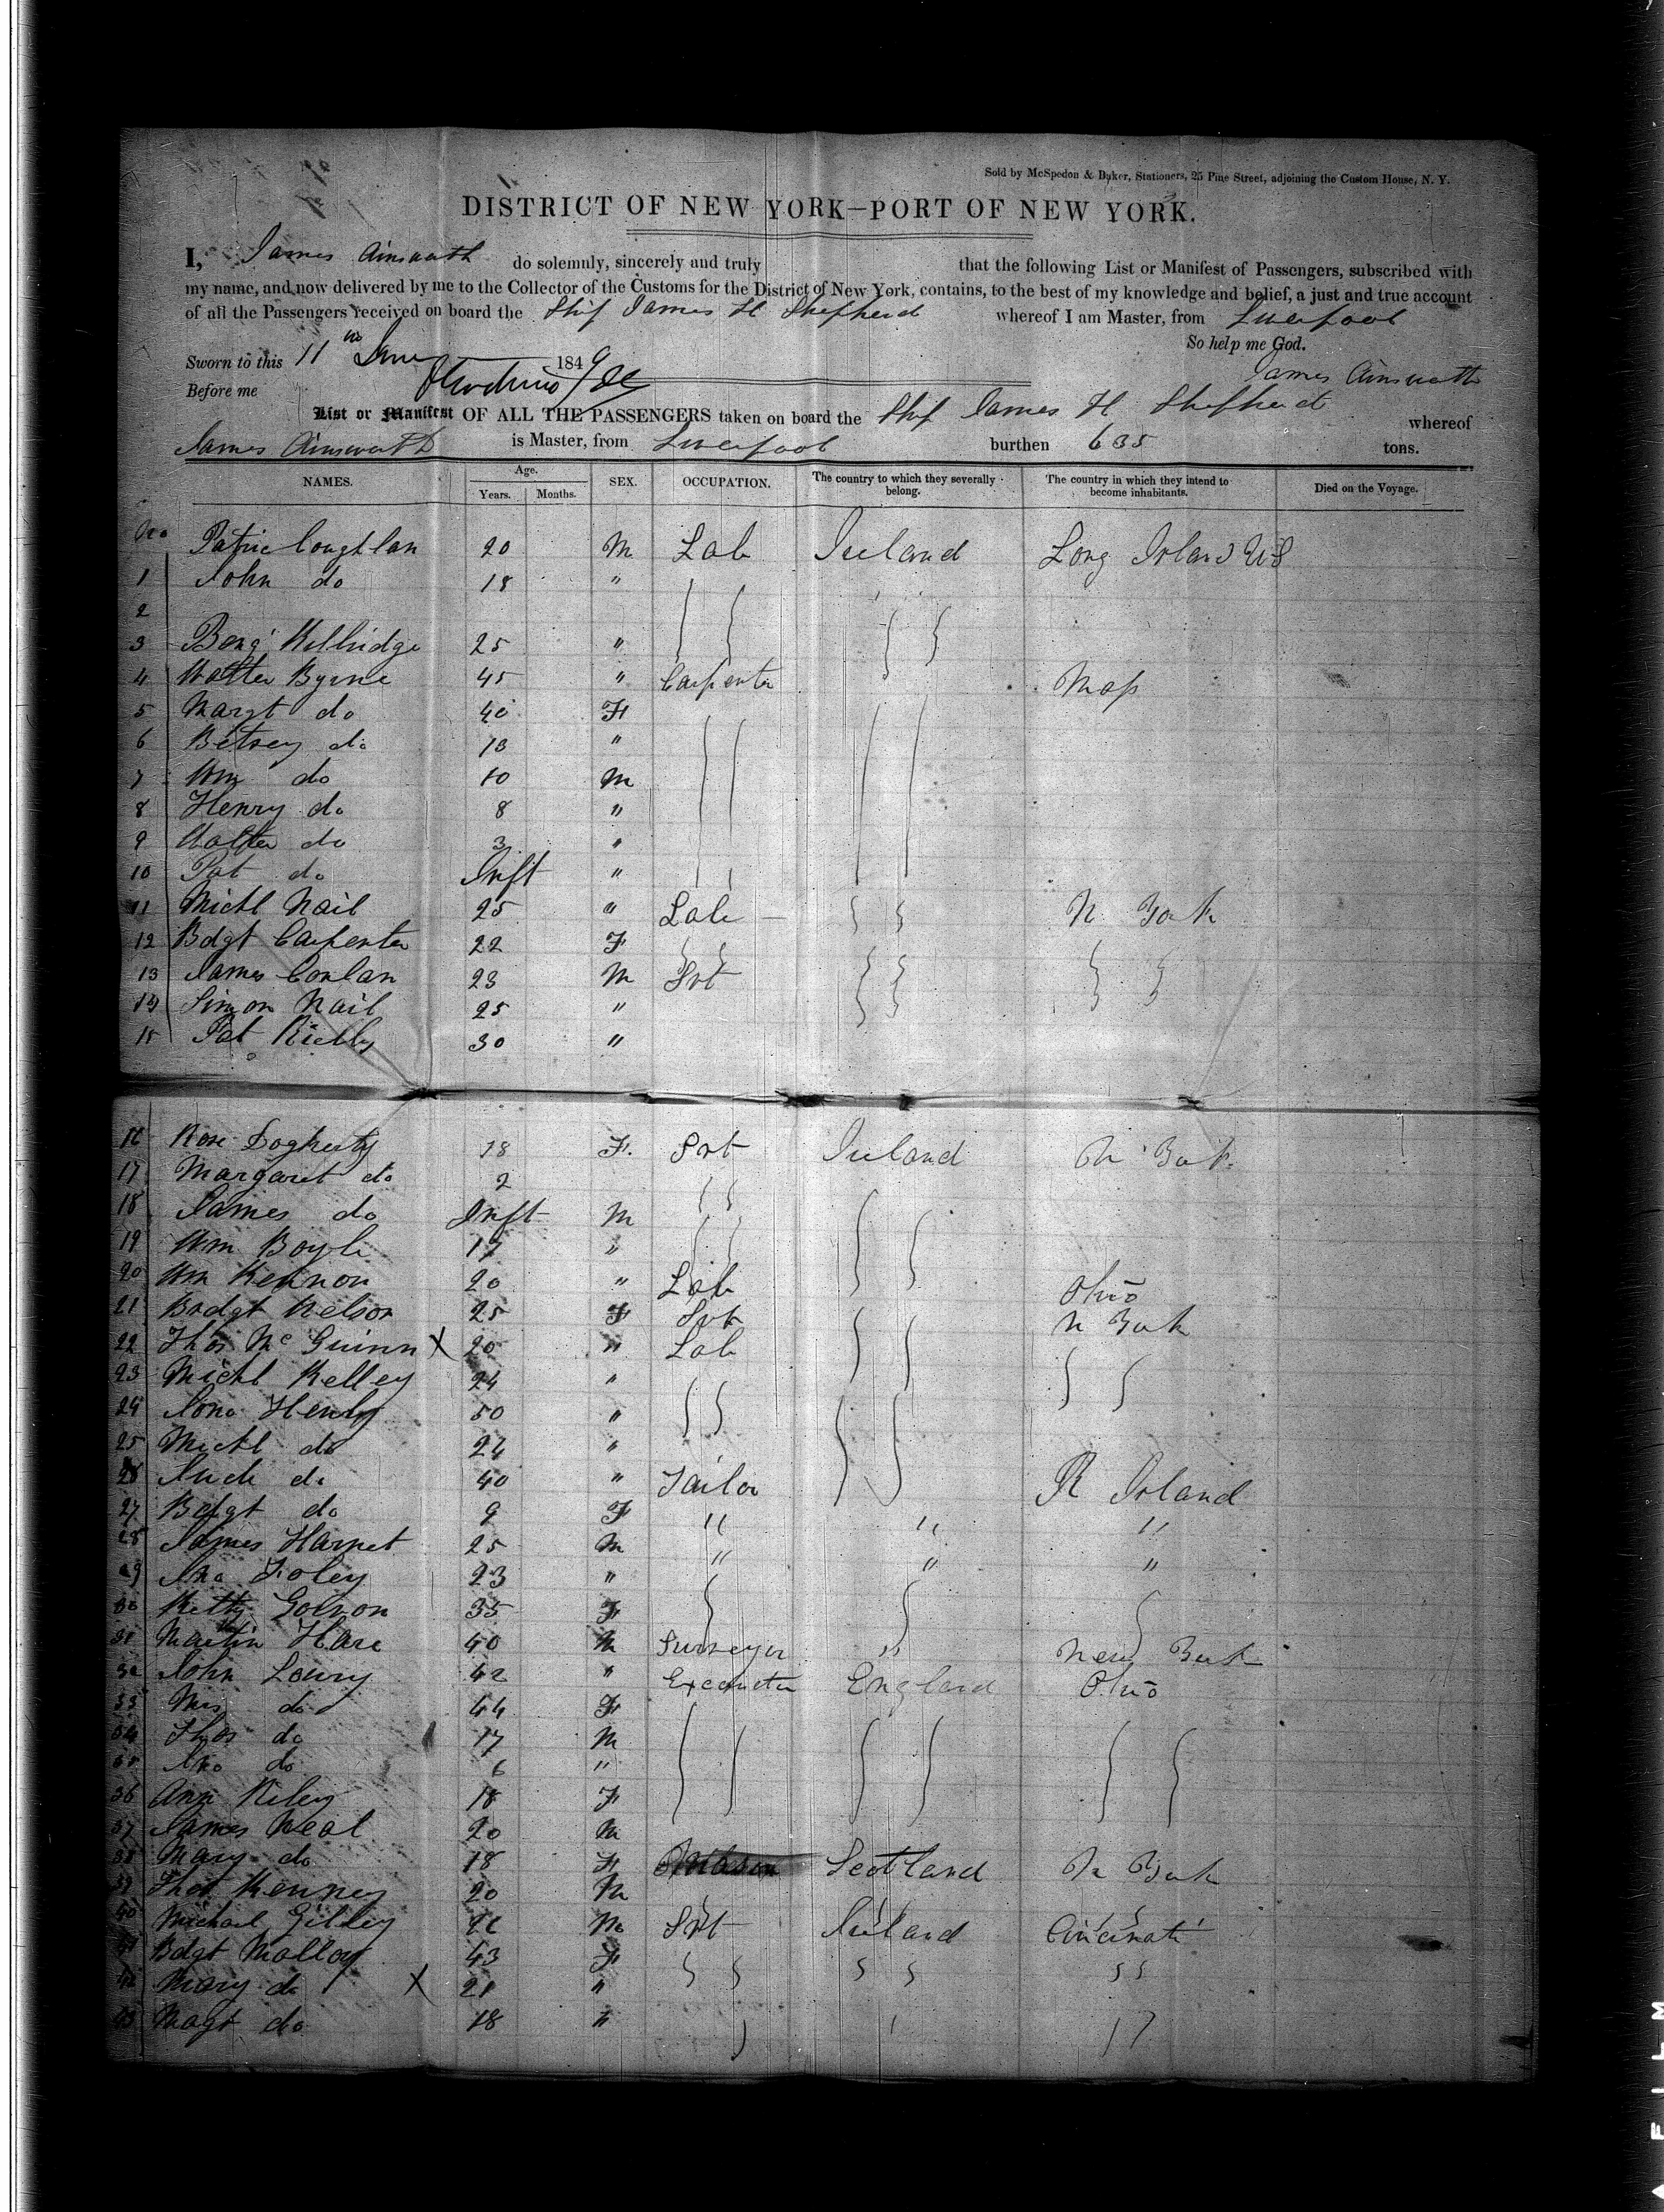 Sold by McSpedon & Baker, Stationers, 25 Pine Street, adjoining the Custom House, N. Y.
DISTRICT OF NEW YORK—PORT OF NEW YORK.
I, James Ainsworth do solemnly, sincerely and truly that the following List or Manifest of Passengers, subscribed with
my name, and now delivered by me to the Collector of the Customs for the District of New York, contains, to the best of my knowledge and belief, a just and true account
of all the Passengers received on board the Ship James H Shepherd whereof I am Master, from Liverpool
So help me God.
Sworn to this 11th 1849 James Ainsworth
Before me
List or Manifest OF ALL THE PASSENGERS taken on board the Ship James H Shepherd whereof
James Ainsworth is Master, from Liverpool burthen 635 tons.
NAMES. Age. Years. Months. SEX. OCCUPATION. The country to which they severally belong. The country in which they intend to become inhabitants. Died on the Voyage.
No Patric Coughlan 20 M Lab Ireland Long Island US
1 John do 18 "
2
3 Benj 25 "
4 Walter Byrne 45 " Carpenter Mass
5 Margt do 40 F
6 Betsey do 13 "
7 Wm do 10 M
8 Henry do 8 "
9 Walter do 3 "
10 Pat do Inft "
11 Michl Nail 25 " Lab N York
12 Bdgt Carpenter 22 F
13 James Conlan 23 M Svt
14 Simon Nail 25 "
15 Pat Rielly 30 "
16 Rose Dogherty 18 F. Svt Ireland N York
17 Margaret do 2
18 James do Inft M
19 Wm Boyle 17 "
20 Wm Kennon 20 " Lab Ohio
21 Bridgt Nelson 25 F Svt N York
22 Thos Mc Guinn X 20 " Lab
23 Michl Kelley 24 "
24 Henry 50 "
25 Michl do 24 "
26 do 40 " Tailor R Island
27 Bdgt do 9 F " " "
28 James Harnet 25 M " " "
29 Jno Foley 23 "
30 Kitty 35 F
31 Martin Hare 40 M Surveyor " New York
32 John Lowry 42 " England Ohio
33 Mrs do 44 F
34 Thos do 17 M
35 Jno do 6 "
36 Ann Riley 18 F
37 James Neal 20 M
38 Mary do 18 F Scotland N York
39 Thos Kenney 20 M
40 Michael Gilley M Svt Ireland Cincinati
41 Bdgt Malloy 43 F
42 Mary do X 21 "
43 Magt do 18 "